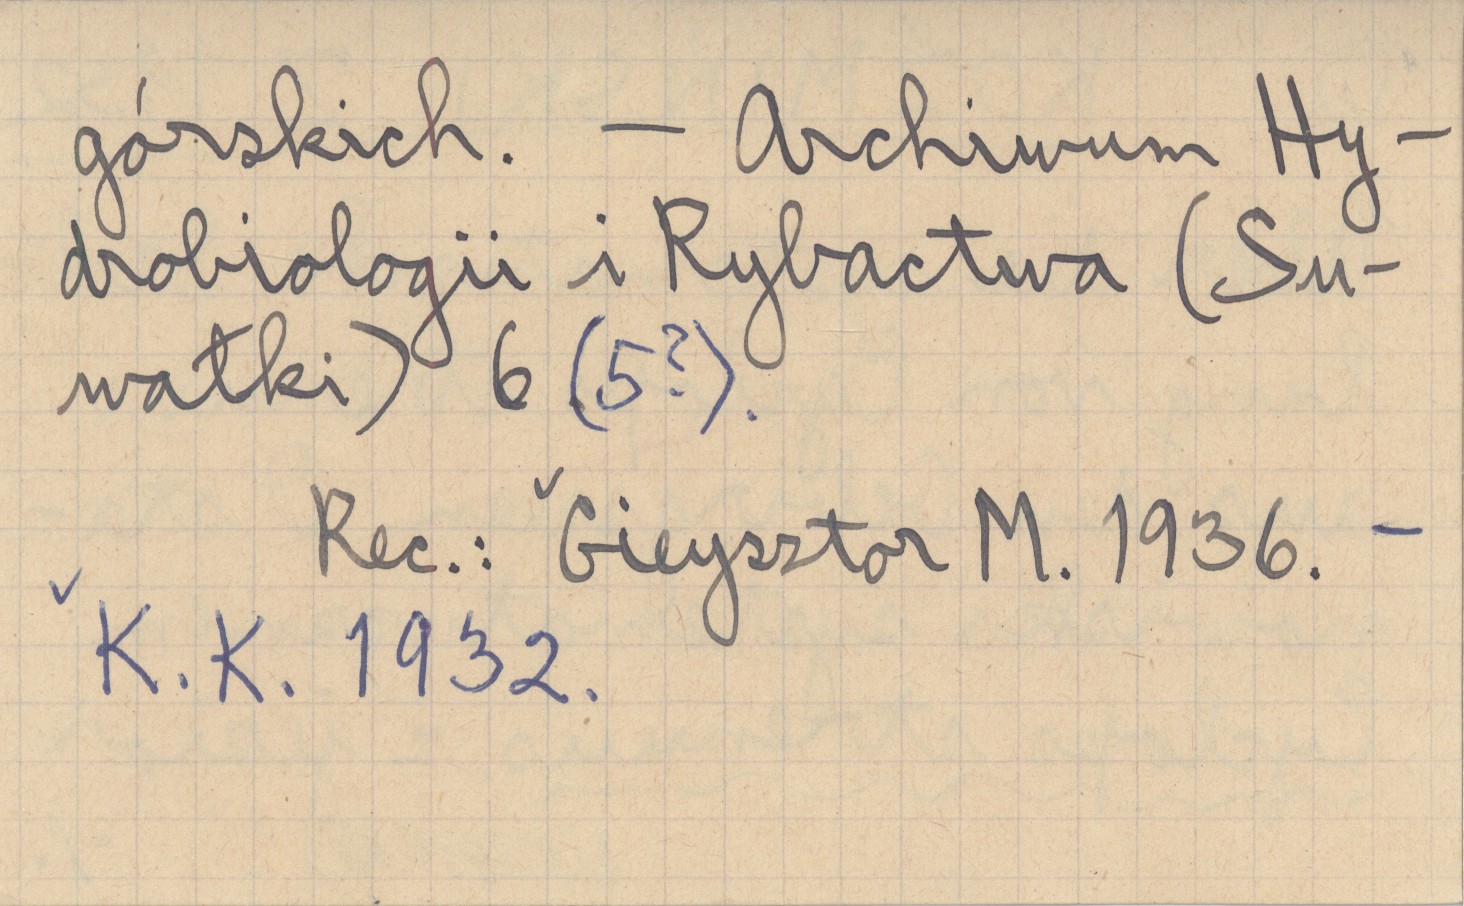 górskich. — Archiwum Hy-
drobiologii i Rybactwa (Su-
wałki) 6 (5?).
Rec.: ˇGieysztor M. 1936. –
ˇK.K. 1932.